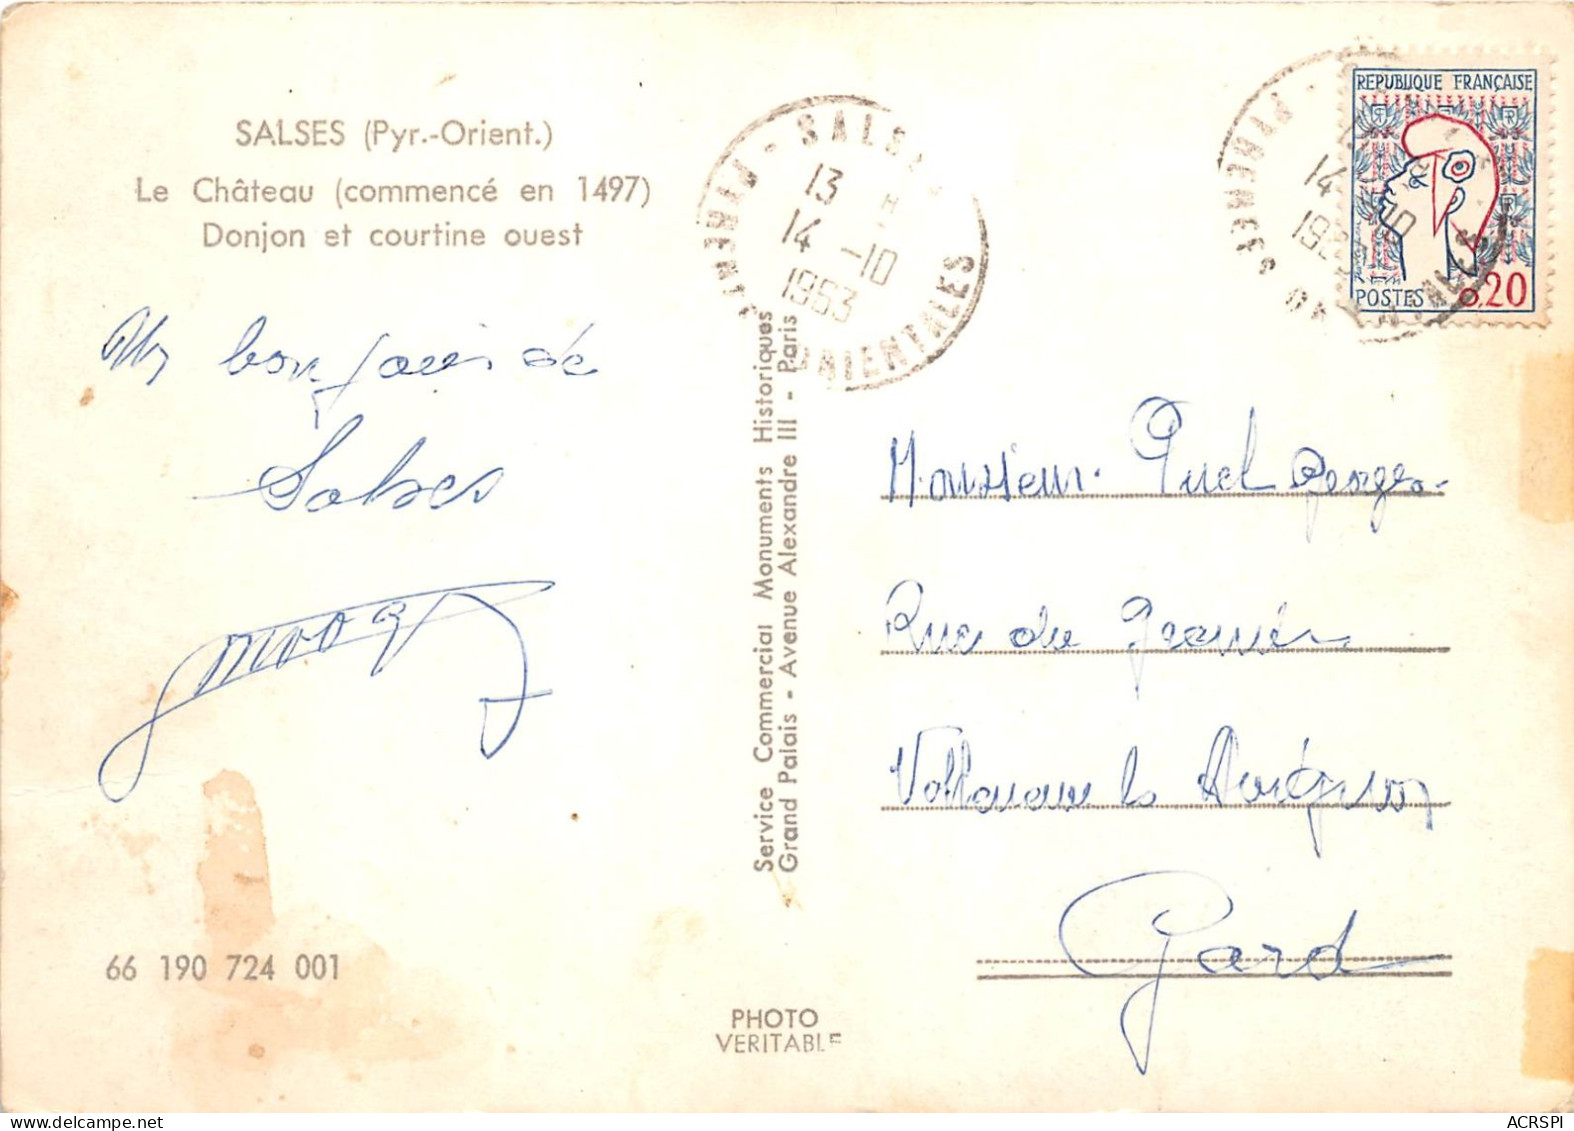 SALSES (Pyr.-Orient.)
Le Château (commencé en 1497)
Donjon et courtine ouest
Un bonjour de
Salses
66 190 724 001
Service Commercial Monuments Historiques
Grand Palais - Avenue Alexandre III - Paris
PHOTO
VERITABLE
SALSES
13 H
14 -10
1963
PYRENEES ORIENTALES
REPUBLIQUE FRANÇAISE
POSTES 0,20
14
Monsieur Puel Georges
Rue du
Avignon
Gard
ACRSPI